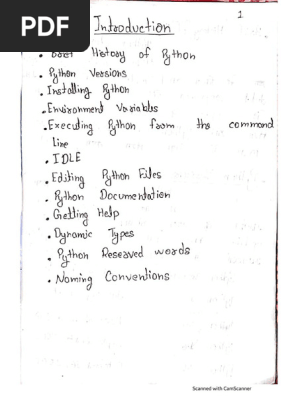 PDF
1
Introduction
• Brief History of Python
• Python Versions
• Installing Python
• Environment Variables
• Executing Python from the command
line
• IDLE
• Editing Python Files
• Python Documentation
• Getting Help
• Dynamic Types
• Python Reserved words
• Naming Conventions
Scanned with CamScanner